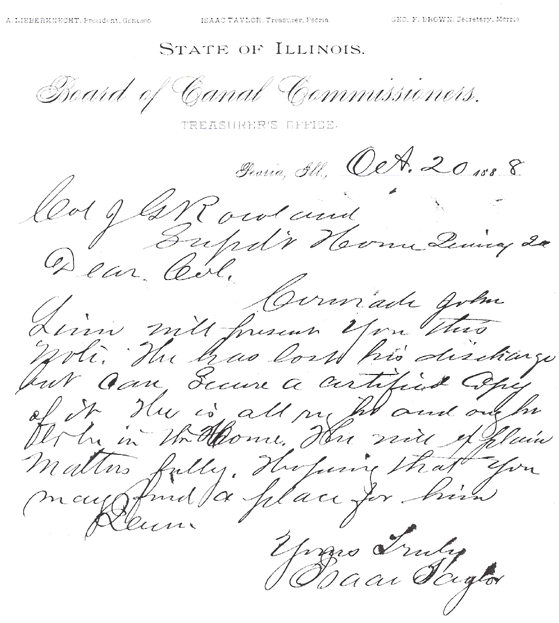 A. LIEBERKNECHT, President, Geneseo. ISAAC TAYLOR, Treasurer, Peoria. GEO. F. BROWN, Secretary, Morris.
STATE OF ILLINOIS.
Board of Canal Commissioners.
TREASURER'S OFFICE.
Peoria, Ill., Oct. 20 1888.
Col J G Rowland
Supdt Home Quincy
Dear Col.
Comrade John
Linn will present you this
Note. He has lost his discharge
but can secure a certified copy
of it He is all right and ought
to be in the Home. He will explain
Matters fully. Hoping that you
may find a place for him
Yours Truly
Isaac Taylor